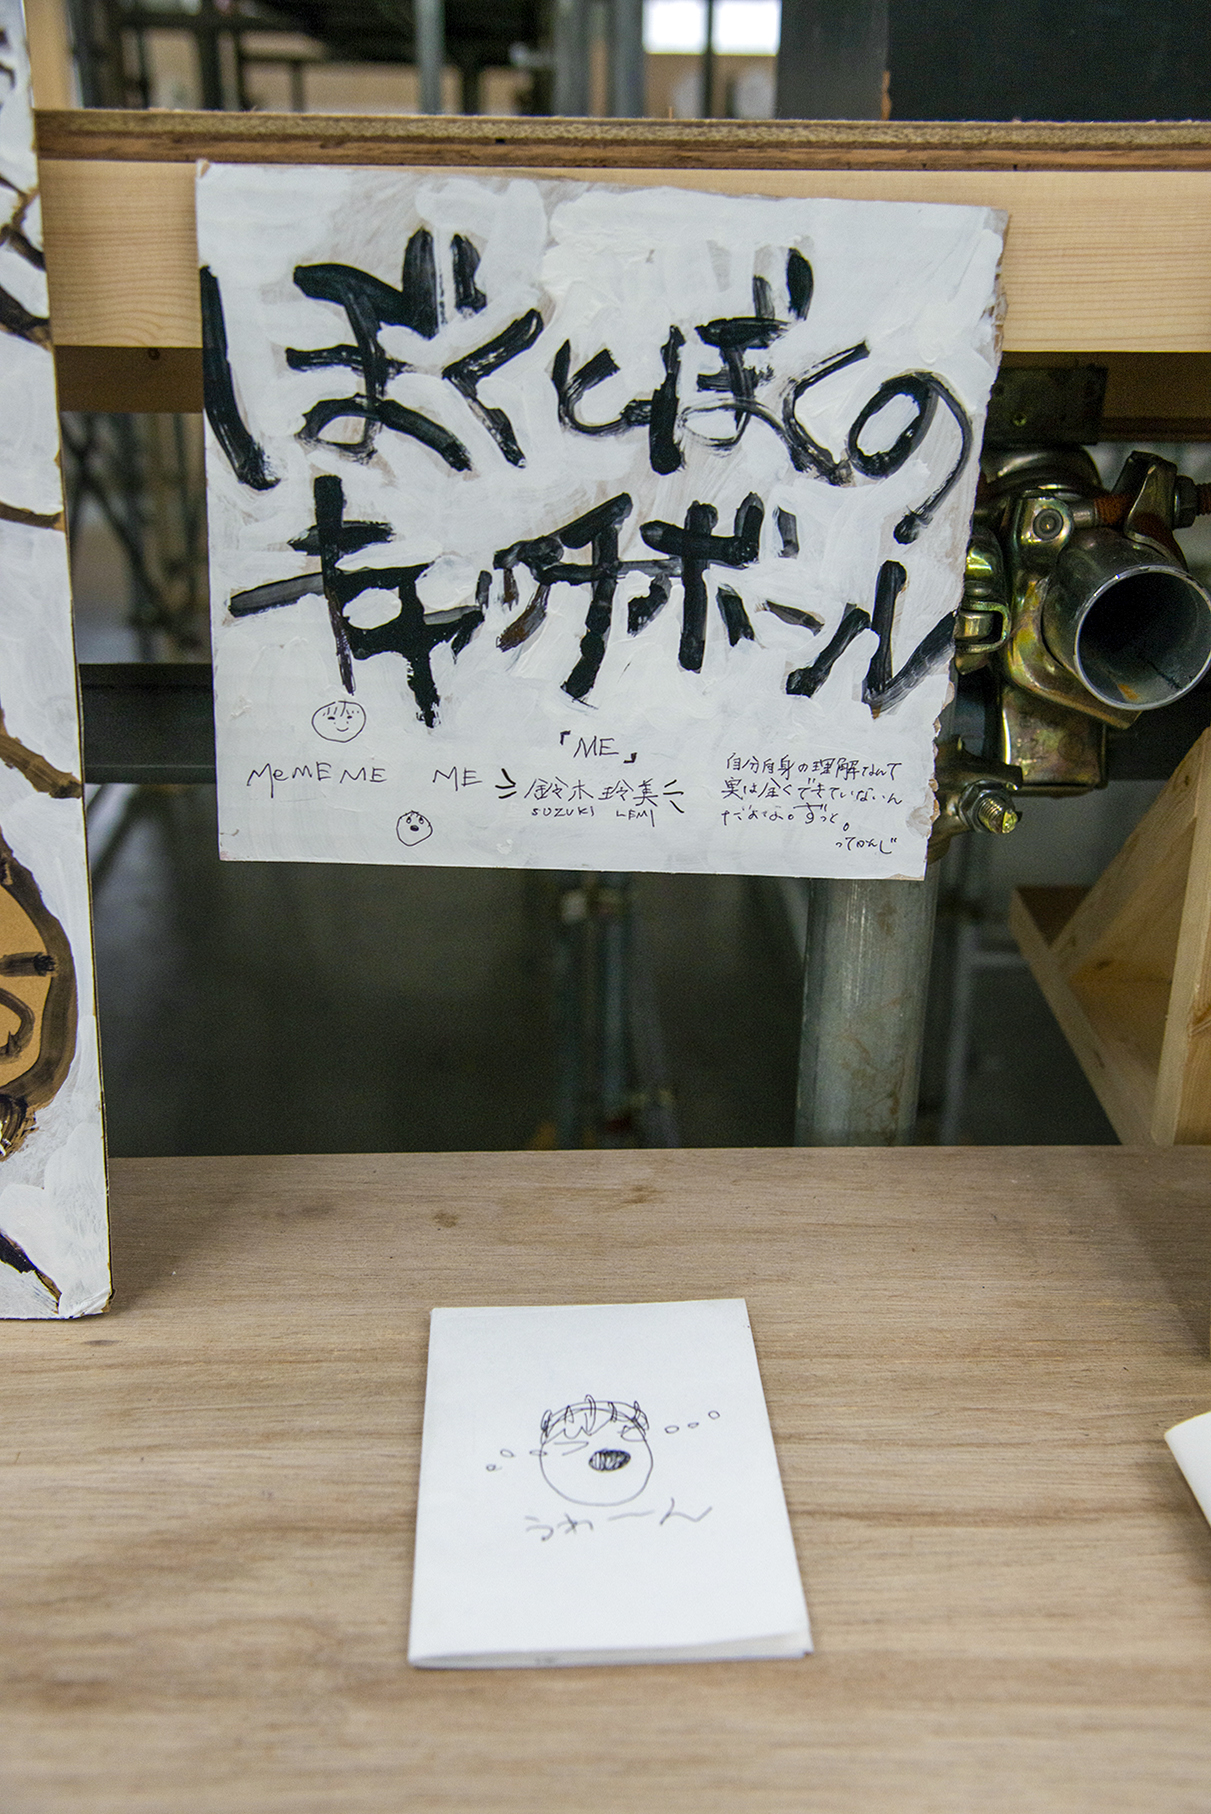 ぼくとぼくの
キャッチボール
「ME」
MeMEME ME 鈴木玲美
SUZUKI LEMI
自分自身の理解なんて
実は全くできていないん
だよな。ずっと。
ってかんじ
うわーん